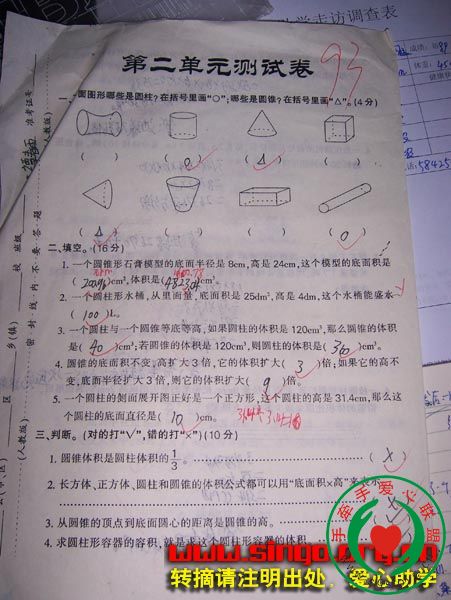 学走访调查表
第二单元测试卷
93
一、面图形哪些是圆柱?在括号里画"○";哪些是圆锥?在括号里画"△"。(4分)
( ) ( ○ ) ( △ ) ( )
( △ ) ( ) ( ) ( ○ )
二、填空。(16分)
1. 一个圆锥形石膏模型的底面半径是8cm,高是24cm,这个模型的底面积是
( 200.96 )cm²,体积是( )cm³。
2. 一个圆柱形水桶,从里面量,底面积是25dm²,高是4dm,这个水桶能盛水
( 100 )L。
3. 一个圆柱与一个圆锥等底等高,如果圆柱的体积是120cm³,那么圆锥的体积
是( 40 )cm³;若圆锥的体积是120cm³,则圆柱的体积是( 360 )cm³。
4. 圆锥的底面积不变,高扩大3倍,它的体积扩大( 3 )倍;如果它的高不
变,底面半径扩大3倍,则它的体积扩大( 9 )倍。
5. 一个圆柱的侧面展开图正好是一个正方形,这个圆柱的高是31.4cm,那么这
个圆柱的底面直径是( 10 )cm。 31.4÷3.14=10
三、判断。(对的打"√",错的打"×")(10分)
1. 圆锥体积是圆柱体积的1/3。 ( × )
2. 长方体、正方体、圆柱和圆锥的体积公式都可以用"底面积×高"来表示
( ×
3. 从圆锥的顶点到底面圆心的距离是圆锥的高。
4. 求圆柱形容器的容积,就是求这个圆柱形容器的体积。
准考证号
(人教版)
班级
校
密封线内不要答题
乡(镇)
区
(人教版)
手牵手爱心联盟
www.singo.org.cn
转摘请注明出处,爱心助学